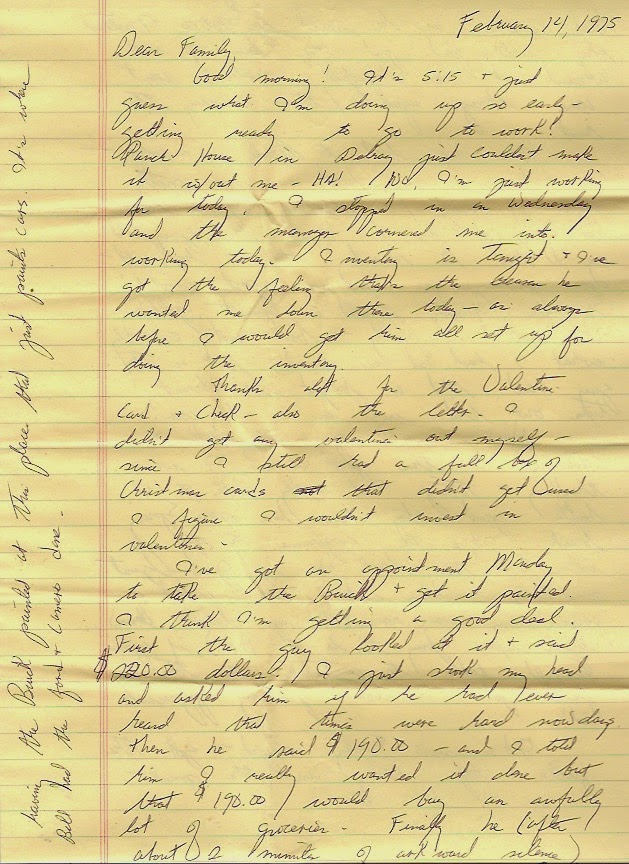 February 14, 1975
Dear Family,
Good morning! It's 5:15 + just
guess what I'm doing up so early -
getting ready to go to work!
House in Delray just couldn't make
it w/out me - HA! No, I'm just working
for today. I stopped in on Wednesday
and the manager cornered me into
working today. Inventory is Tonight + I've
got the feeling that's the reason he
wanted me down there today - as always
before I would get him all set up for
doing the inventory.
Thanks alot for the Valentine
Card + Check - also the letter. I
didn't get any valentines out myself -
since I still had a full box of
Christmas cards that didn't get used
I figure I wouldn't invest in
valentines -
I've got an appointment Monday
to take the Buick + get it painted.
I think I'm getting a good deal.
First the guy looked at it + said
$220.00 dollars. I just shook my head
and asked him if he had ever
heard that times were hard nowdays.
Then he said $190.00 - and I told
him I really wanted it done but
that $190.00 would buy an awfully
lot of groceries - Finally he (after
about 2 minutes of awkward silence)
having the Buick painted at this place that just paints cars. It's where
Bill had the Ford + Camero done -